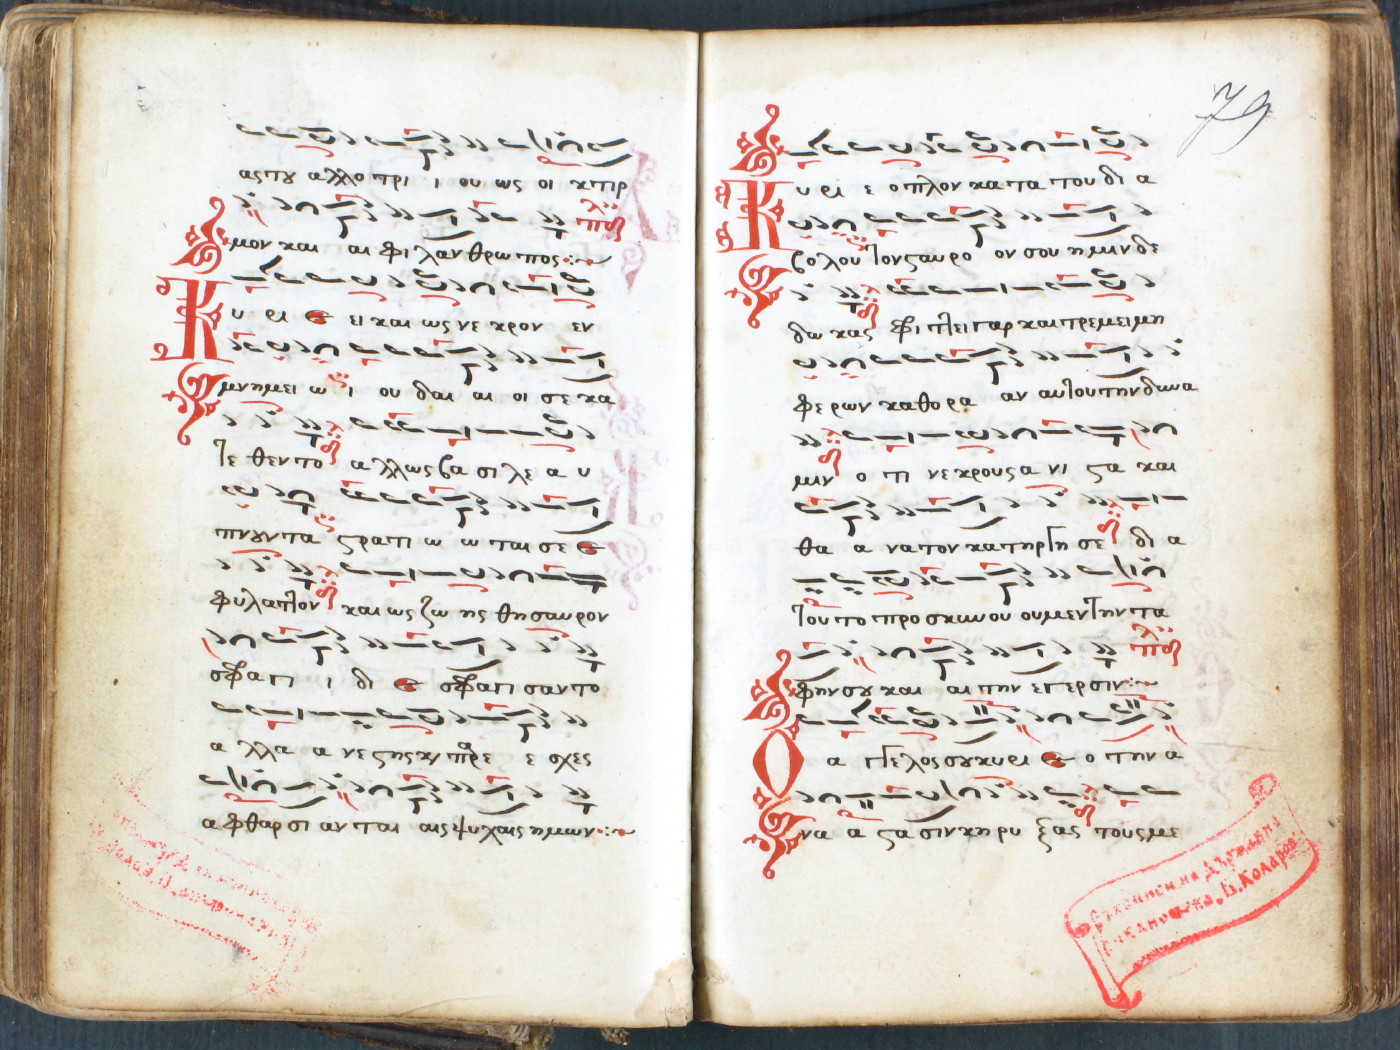 αςτȣ αλλο τρι ι ου ως οι κτιρ
μον και αι φι λαν θρω πος
Κυ ρι ε ει και ως νε κρον εν
μνημει ω ι ου δαι αι οι σε κα
τε θεν το αλλως βα σι λε α υ
πνȣντα στρατι ω ω ται σε ε
φυλαττον και ως ζω ης θησαυρον
σφραγι ι δι ε σφραγι σαντο
α λλα α νε στης κ παρε ε σχες
αφθαρσι αν ται αις ψυχαις ημων
79
Κυ ρι ε οπλον κατα του δι α
βολου τονσταυρο ον σου ημιν δε
δω κας φριττει γαρ και τρεμει μη
φερων καθορα αν αυτου την δυνα
μιν ο τι νεκρους α νι στα και
θα α νατον κατηργη σε δι α
τουτο προσκυνου ουμεν την τα
φην σȣ και αι την εγερσιν
Ο α γγελος σȣ κυρι ε ο την α
να α στασιν κη ρυ ξας τους με
Ръкописи на Държавна
библиотека „В. Коларов"